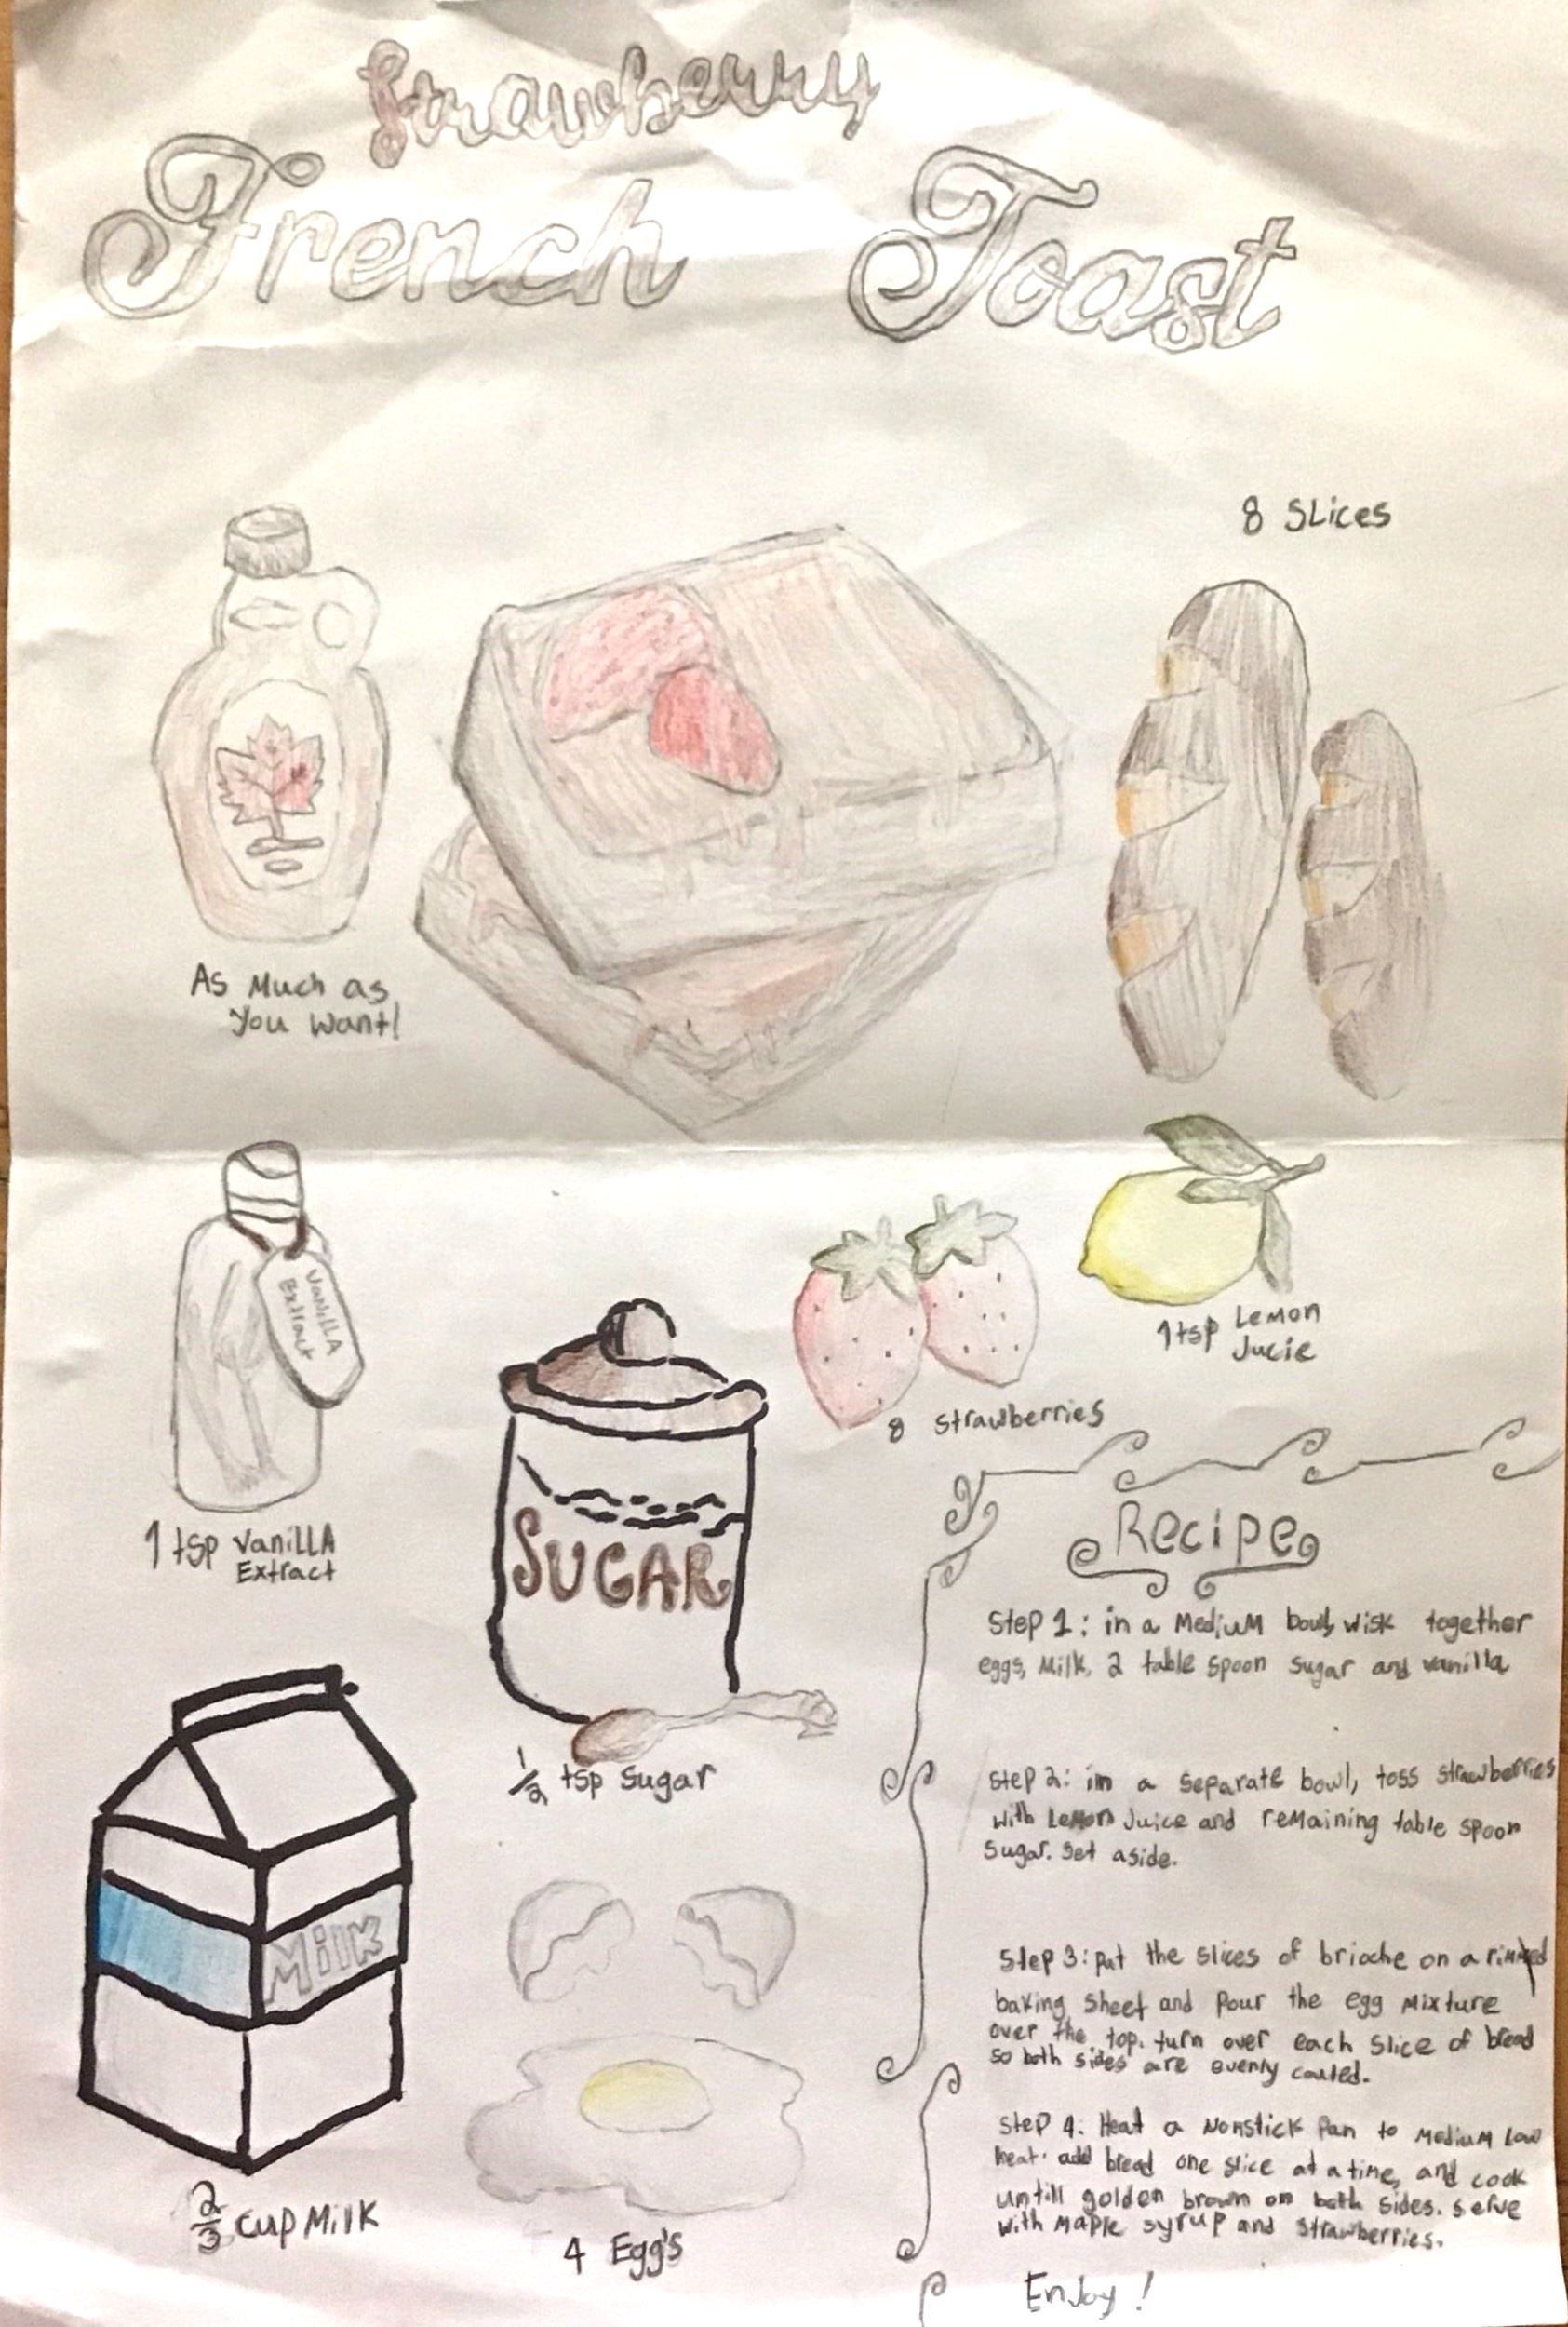 Strawberry
French Toast
8 SLices
As Much as
You Want!
Vanilla
Extract
1 tsp Lemon
Jucie
8 Strawberries
1 tsp Vanilla
Extract
SUGAR
Recipe
Step 1: in a Medium bowl, wisk together
eggs, Milk, 2 table spoon sugar and vanilla
1/2 tsp Sugar
Step 2: in a Separate bowl, toss strawberries
with Lemon Juice and remaining table spoon
Sugar. Set aside.
Milk
Step 3: Put the slices of brioche on a rimmed
baking sheet and Pour the egg Mixture
over the top. turn over each slice of bread
so both sides are evenly coated.
Step 4. Heat a Nonstick Pan to Medium Low
heat. add bread one slice at a time, and cook
untill golden brown on both sides. Serve
with Maple syrup and Strawberries.
2/3 cup Milk
4 Egg's
Enjoy!